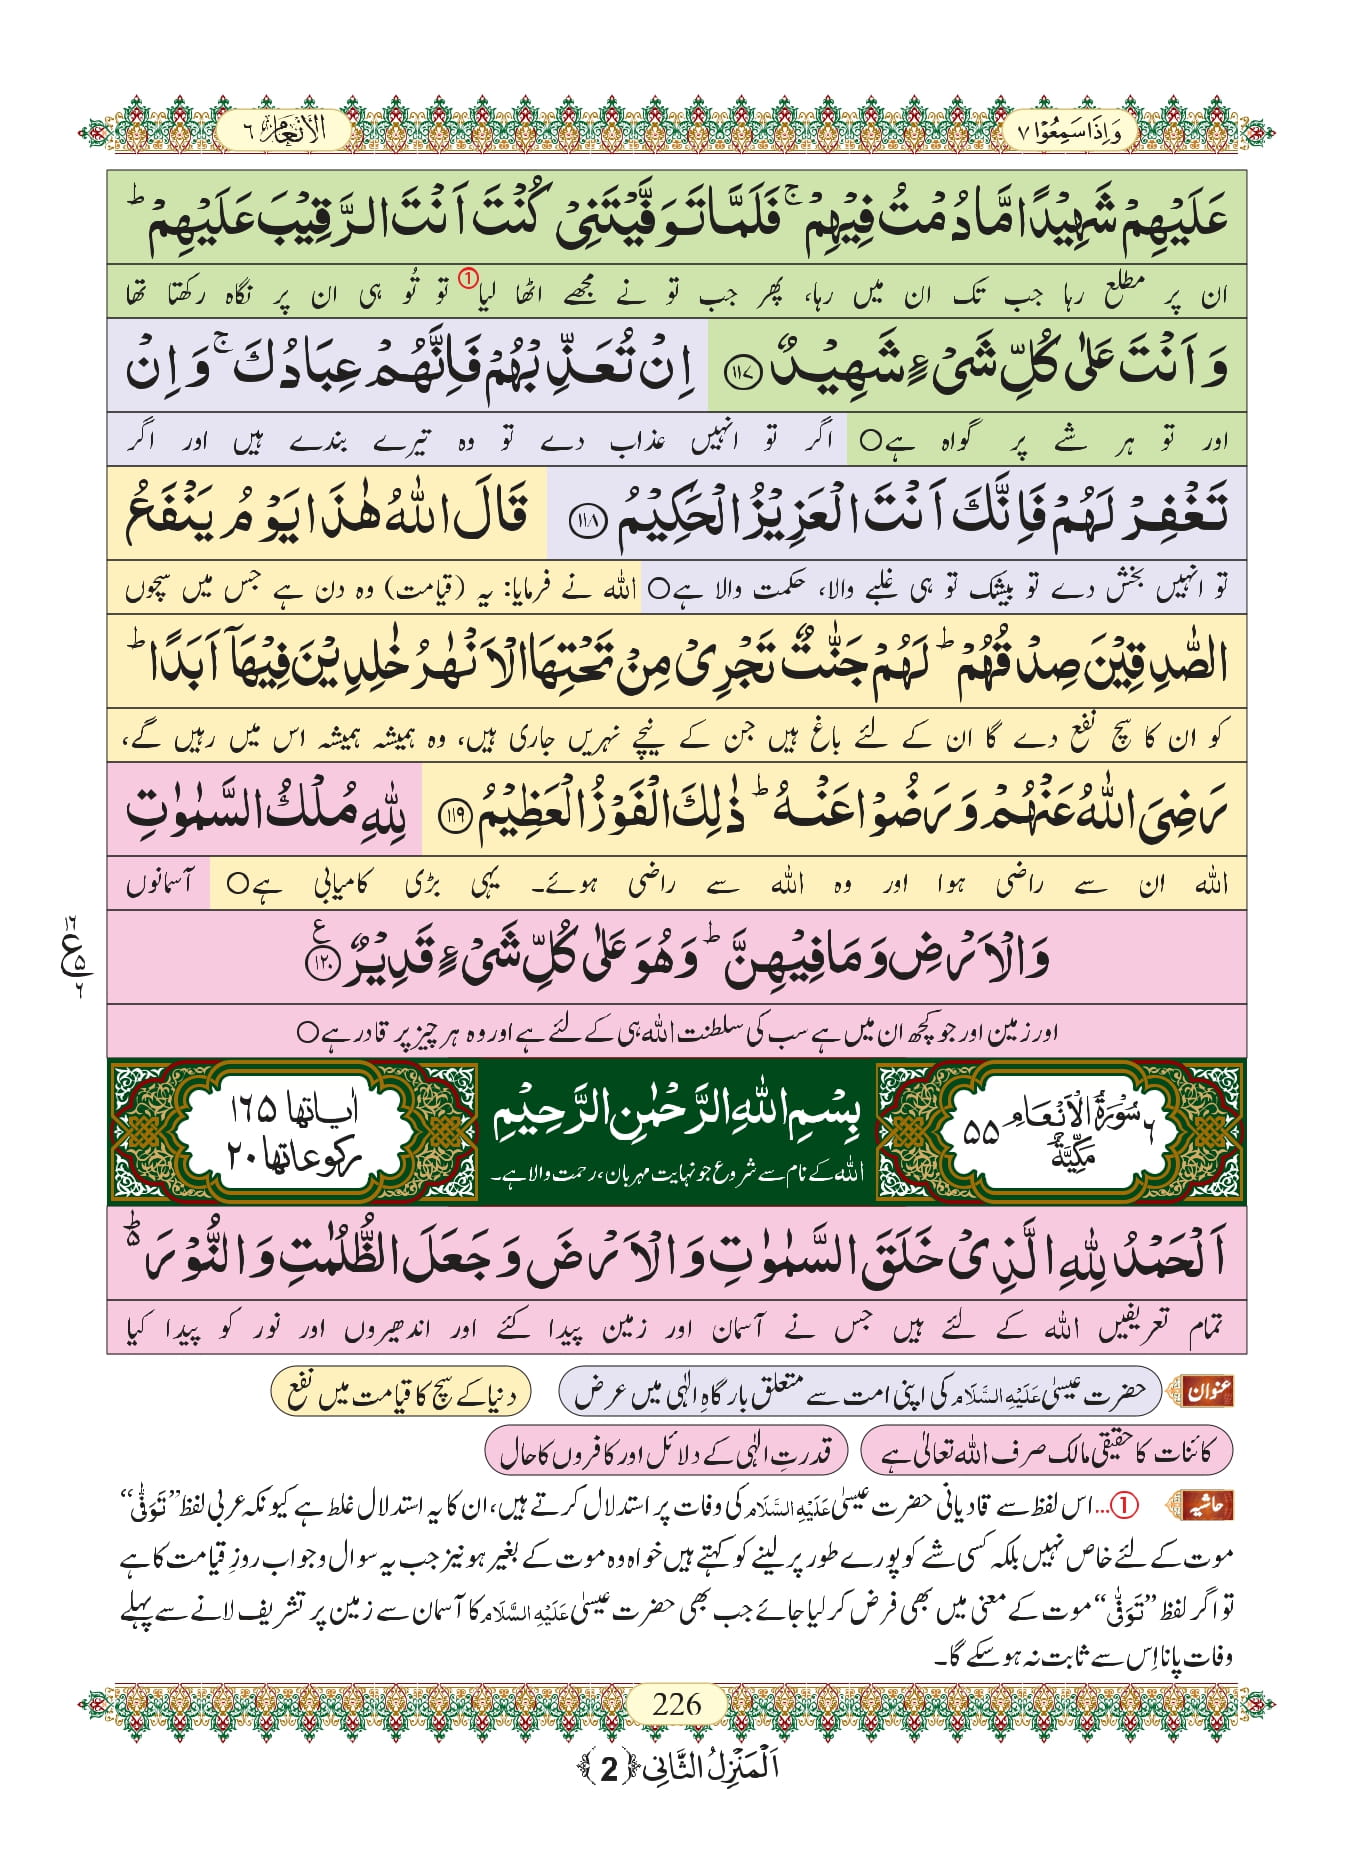 وَاِذَا سَمِعُوْا ۷
الأنعام ٦
عَلَيْهِمْ شَهِيْدًا مَّا دُمْتُ فِيْهِمْ ۚ فَلَمَّا تَوَفَّيْتَنِيْ كُنْتَ اَنْتَ الرَّقِيْبَ عَلَيْهِمْ ؕ
ان پر مطلع رہا جب تک ان میں رہا، پھر جب تو نے مجھے اٹھا لیا① تو تُو ہی ان پر نگاہ رکھتا تھا
وَ اَنْتَ عَلٰى كُلِّ شَیْءٍ شَهِيْدٌ ﴿۱۱۷﴾ اِنْ تُعَذِّبْهُمْ فَاِنَّهُمْ عِبَادُكَ ۚ وَ اِنْ
اور تو ہر شے پر گواہ ہے○ اگر تو انہیں عذاب دے تو وہ تیرے بندے ہیں اور اگر
تَغْفِرْ لَهُمْ فَاِنَّكَ اَنْتَ الْعَزِيْزُ الْحَكِيْمُ ﴿۱۱۸﴾ قَالَ اللّٰهُ هٰذَا يَوْمُ يَنْفَعُ
تو انہیں بخش دے تو بیشک تو ہی غلبے والا، حکمت والا ہے○ اللہ نے فرمایا: یہ (قیامت) وہ دن ہے جس میں سچوں
الصّٰدِقِيْنَ صِدْقُهُمْ ؕ لَهُمْ جَنّٰتٌ تَجْرِيْ مِنْ تَحْتِهَا الْاَنْهٰرُ خٰلِدِيْنَ فِيْهَاۤ اَبَدًا ؕ
کو ان کا سچ نفع دے گا ان کے لئے باغ ہیں جن کے نیچے نہریں جاری ہیں، وہ ہمیشہ ہمیشہ اس میں رہیں گے،
رَضِيَ اللّٰهُ عَنْهُمْ وَ رَضُوْا عَنْهُ ؕ ذٰلِكَ الْفَوْزُ الْعَظِيْمُ ﴿۱۱۹﴾ لِلّٰهِ مُلْكُ السَّمٰوٰتِ
اللہ ان سے راضی ہوا اور وہ اللہ سے راضی ہوئے۔ یہی بڑی کامیابی ہے○ آسمانوں
وَ الْاَرْضِ وَ مَا فِيْهِنَّ ؕ وَ هُوَ عَلٰى كُلِّ شَیْءٍ قَدِيْرٌ ﴿۱۲۰﴾ ع
۱۶
ع ۵
۶
اور زمین اور جو کچھ ان میں ہے سب کی سلطنت اللہ ہی کے لئے ہے اور وہ ہر چیز پر قادر ہے○
٦ سُوْرَةُ الْاَنْعَامِ مَكِّيَّةٌ ۵۵
بِسْمِ اللّٰهِ الرَّحْمٰنِ الرَّحِيْمِ
اللہ کے نام سے شروع جو نہایت مہربان، رحمت والا ہے۔
اٰیاتها ۱۶۵
رکوعاتها ۲۰
اَلْحَمْدُ لِلّٰهِ الَّذِيْ خَلَقَ السَّمٰوٰتِ وَ الْاَرْضَ وَ جَعَلَ الظُّلُمٰتِ وَ النُّوْرَ ۬ؕ
تمام تعریفیں اللہ کے لئے ہیں جس نے آسمان اور زمین پیدا کئے اور اندھیروں اور نور کو پیدا کیا
عنوان حضرت عیسیٰ عَلَیْہِ السَّلَام کی اپنی امت سے متعلق بارگاہِ الٰہی میں عرض دنیا کے سچ کا قیامت میں نفع
کائنات کا حقیقی مالک صرف اللہ تعالیٰ ہے قدرتِ الٰہی کے دلائل اور کافروں کا حال
حاشیہ ①...اس لفظ سے قادیانی حضرت عیسیٰ عَلَیْہِ السَّلَام کی وفات پر استدلال کرتے ہیں، ان کا یہ استدلال غلط ہے کیونکہ عربی لفظ ”تَوَفّٰی“
موت کے لئے خاص نہیں بلکہ کسی شے کو پورے طور پر لینے کو کہتے ہیں خواہ وہ موت کے بغیر ہو نیز جب یہ سوال و جواب روزِ قیامت کا ہے
تو اگر لفظ ”تَوَفّٰی“ موت کے معنی میں بھی فرض کر لیا جائے جب بھی حضرت عیسیٰ عَلَیْہِ السَّلَام کا آسمان سے زمین پر تشریف لانے سے پہلے
وفات پانا اِس سے ثابت نہ ہو سکے گا۔
226
اَلْمَنْزِلُ الثَّانِي ﴿2﴾